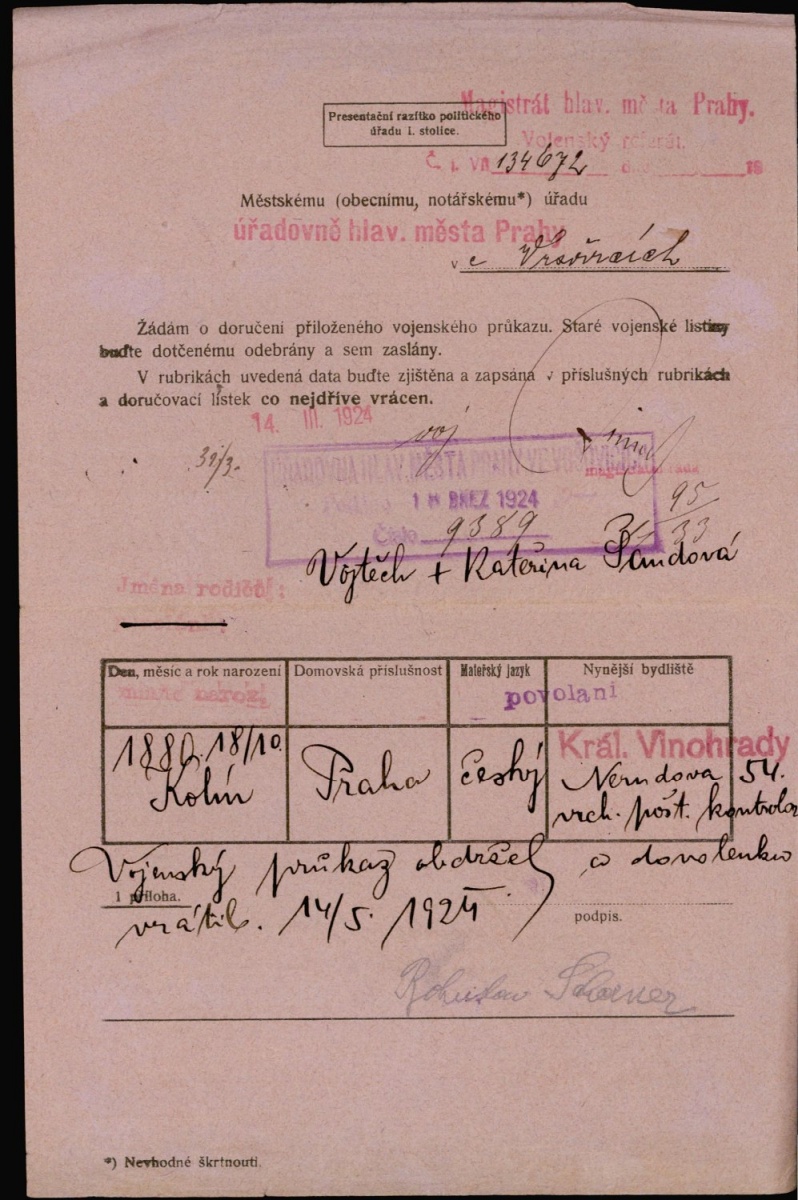 Magistrát hlav. města Prahy.
Presentační razítko politického
úřadu I. stolice.
Vojenský referát.
Č. j. VII 134672 19
Městskému (obecnímu, notářskému*) úřadu
úřadovně hlav. města Prahy
v e Vršovicích
Žádám o doručení přiloženého vojenského průkazu. Staré vojenské listiny
buďte dotčenému odebrány a sem zaslány.
V rubrikách uvedená data buďte zjištěna a zapsána v příslušných rubrikách
a doručovací lístek co nejdříve vrácen.
14. III. 1924
voj
31/3.
ÚŘADOVNA HLAV. MĚSTA PRAHY VE VRŠOVICÍCH
18 BŘEZ 1924
95/33
Číslo 9389
Vojtěch + Kateřina
Jména rodičů:
Den, měsíc a rok narození Domovská příslušnost Mateřský jazyk Nynější bydliště
místo naroz. povolání
Král. Vinohrady
1880. 18/10. Praha český Nerudova 54.
Kolín vrch. pošt. kontrolor
Vojenský průkaz obdržel a dovolenku
1 příloha.
vrátil. 14/5. 1924
podpis.
*) Nevhodné škrtnouti.